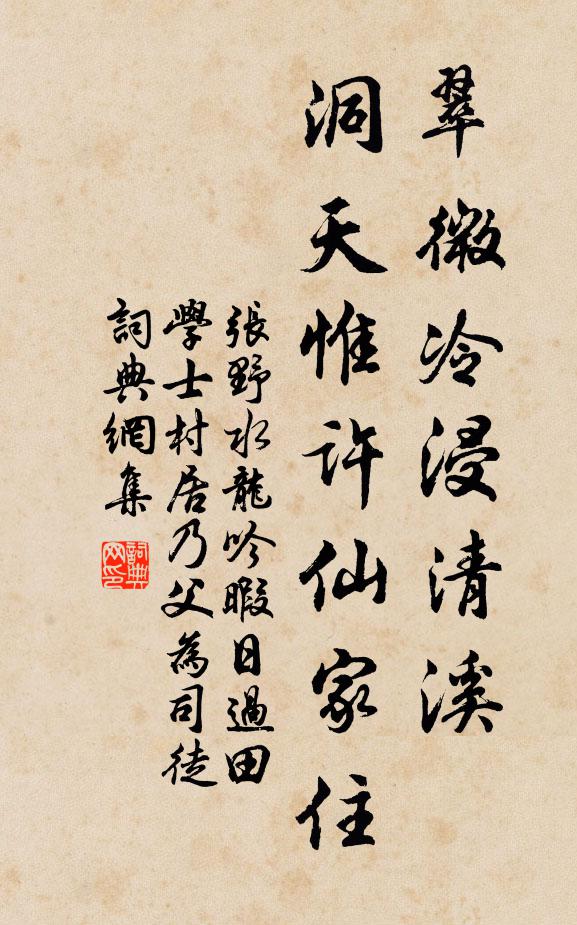 翠微冷浸清溪
洞天惟许仙家住
張野水龍吟暇日過田
學士村居乃父為司徒
詞典網集
詞典网印